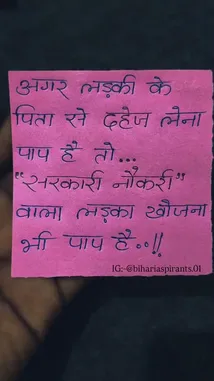 अगर लड़की के
पिता से दहेज लेना
पाप है तो...
"सरकारी नौकरी"
वाला लड़का खोजना
भी पाप है..!!
IG:-@bihariaspirants.01